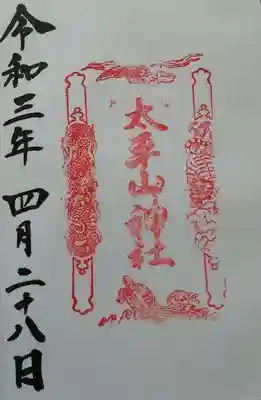 太平山神社
令和三年 四月二十八日